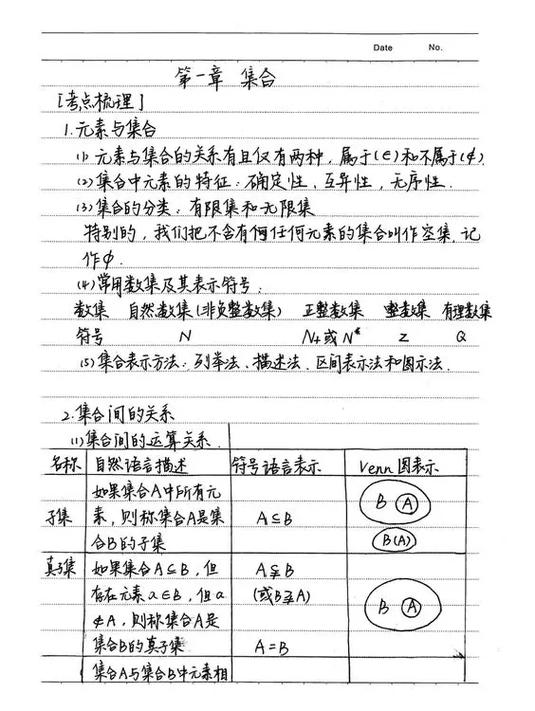 Date No.
第一章 集合
[考点梳理]
1.元素与集合
(1) 元素与集合的关系有且仅有两种，属于(∈)和不属于(∉)
(2)集合中元素的特征：确定性，互异性，无序性.
(3)集合的分类：有限集和无限集
特别的，我们把不含有任何元素的集合叫作空集，记
作φ.
(4)常用数集及其表示符号：
数集 自然数集(非负整数集) 正整数集 整数集 有理数集
符号 N N+或N* Z Q
(5)集合表示方法：列举法、描述法、区间表示法和图示法.
2.集合间的关系
(1)集合间的运算关系.
名称 自然语言描述 符号语言表示 Venn图表示
如果集合A中所有元
子集 素，则称集合A是集 A⊆B B A
合B的子集 B(A)
真子集 如果集合A⊆B，但 A⫋B
存在元素a∈B，但a (或B⫌A) B A
∉A，则称集合A是
集合B的真子集 A=B
集合A与集合B中元素相